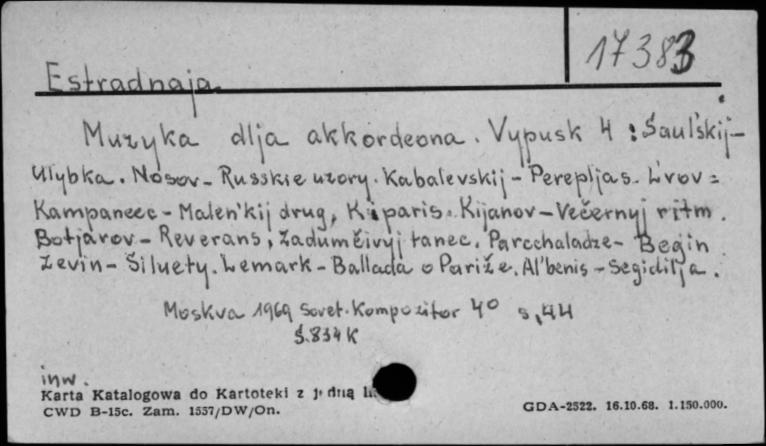 17383
Estradnaja
Muzyka dlja akkordeona. Vypusk 4: Šaul'skij-
Ulybka. Nosov - Russkie uzory. Kabalevskij - Perepljas. L'vov =
Kampaneec - Malen'kij drug, Kiparis. Kijanov - Večernyj ritm.
Botjarov - Reverans, Zadumčivyj tanec. Parcchaladze - Begin
Levin - Siluety. Lemark - Ballada o Pariže. Al'benis - Segidil'ja.
Moskva 1969 Sovet. Kompozitor 4° s. 44
S. 834 K
inw.
Karta Katalogowa do Kartoteki z jedną
CWD B-15c. Zam. 1557/DW/On.
GDA-2522. 16.10.68. 1.150.000.